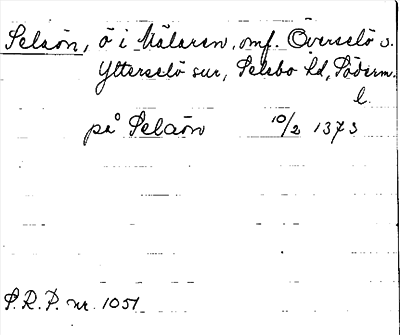 Selaön, ö i Mälaren, omf. Överselö o.
Ytterselö snr, Selebo hd, Söderm.
l.
på Selaön 10/2 1373
S.R.P. nr. 1051